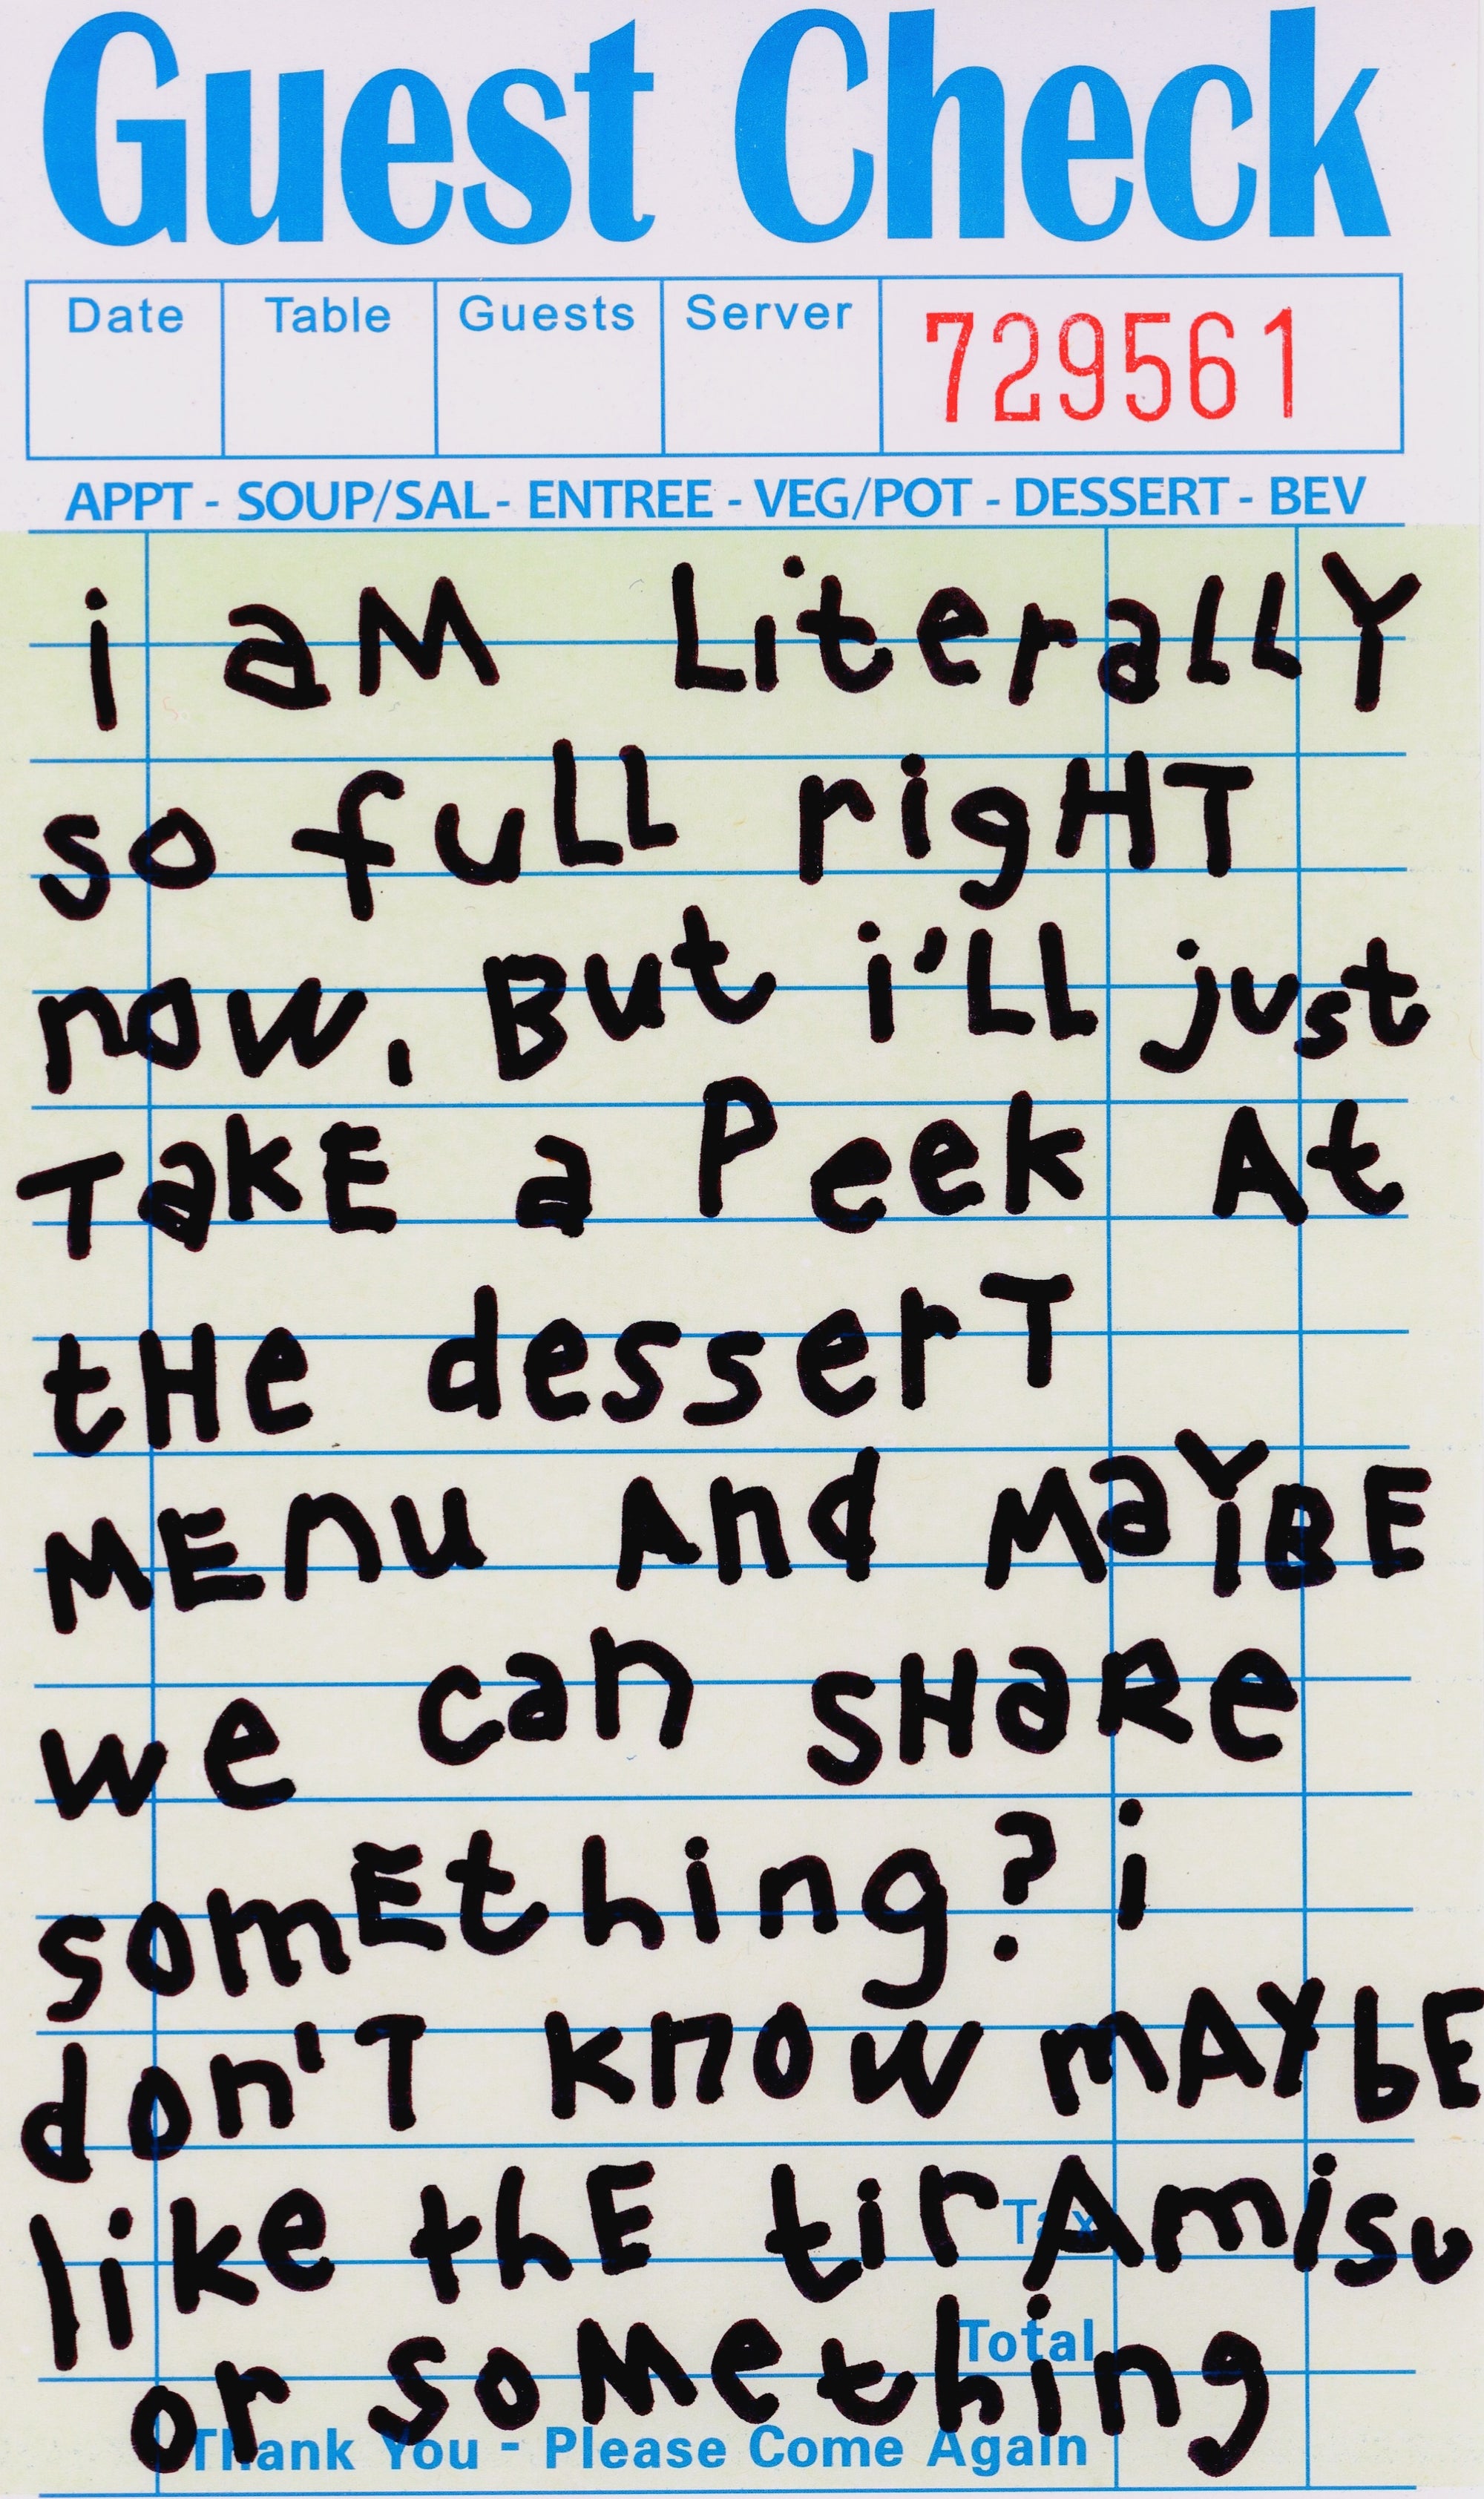 Guest Check
Date Table Guests Server 729561
APPT - SOUP/SAL - ENTREE - VEG/POT - DESSERT - BEV
i aM LiteraLLY
so fuLL rigHT
now, But i'LL just
TakE a Peek At
tHe desserT
MEnu And MaYBE
we can sHaRe
somEthing? i
don'T know mAYbE
like thE tirAmisu
Tax
or something
Total
Thank You - Please Come Again